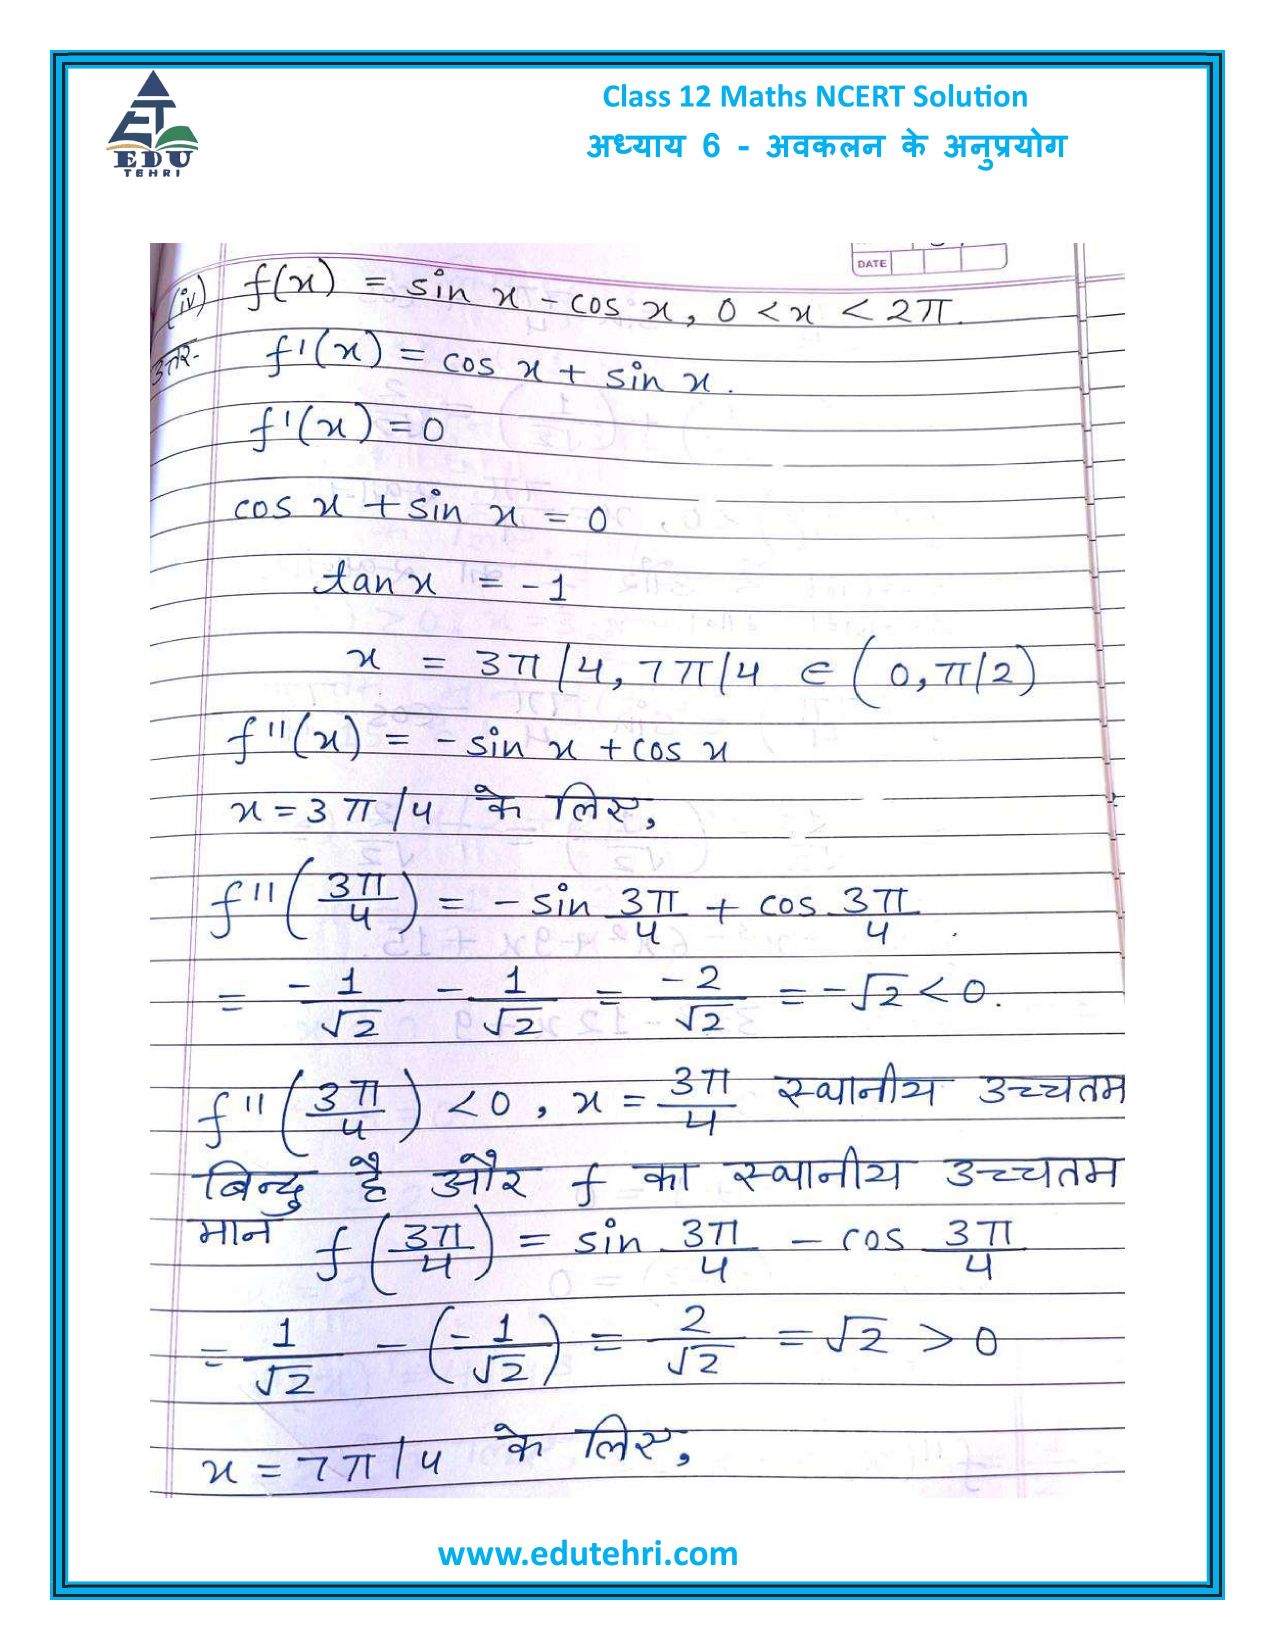 ET
EDU
TEHRI
Class 12 Maths NCERT Solution
अध्याय 6 - अवकलन के अनुप्रयोग
DATE
(iv) f(x) = sin x - cos x, 0 < x < 2π.
उत्तर- f'(x) = cos x + sin x.
f'(x) = 0
cos x + sin x = 0
tan x = -1
x = 3π/4, 7π/4 ∈ (0, π/2)
f''(x) = - sin x + cos x
x = 3π/4 के लिए,
f''(3π/4) = - sin 3π/4 + cos 3π/4.
= -1/√2 - 1/√2 = -2/√2 = -√2 < 0.
f''(3π/4) < 0, x = 3π/4 स्थानीय उच्चतम
बिन्दु है और f का स्थानीय उच्चतम
मान f(3π/4) = sin 3π/4 - cos 3π/4
= 1/√2 - (-1/√2) = 2/√2 = √2 > 0
x = 7π/4 के लिए,
www.edutehri.com